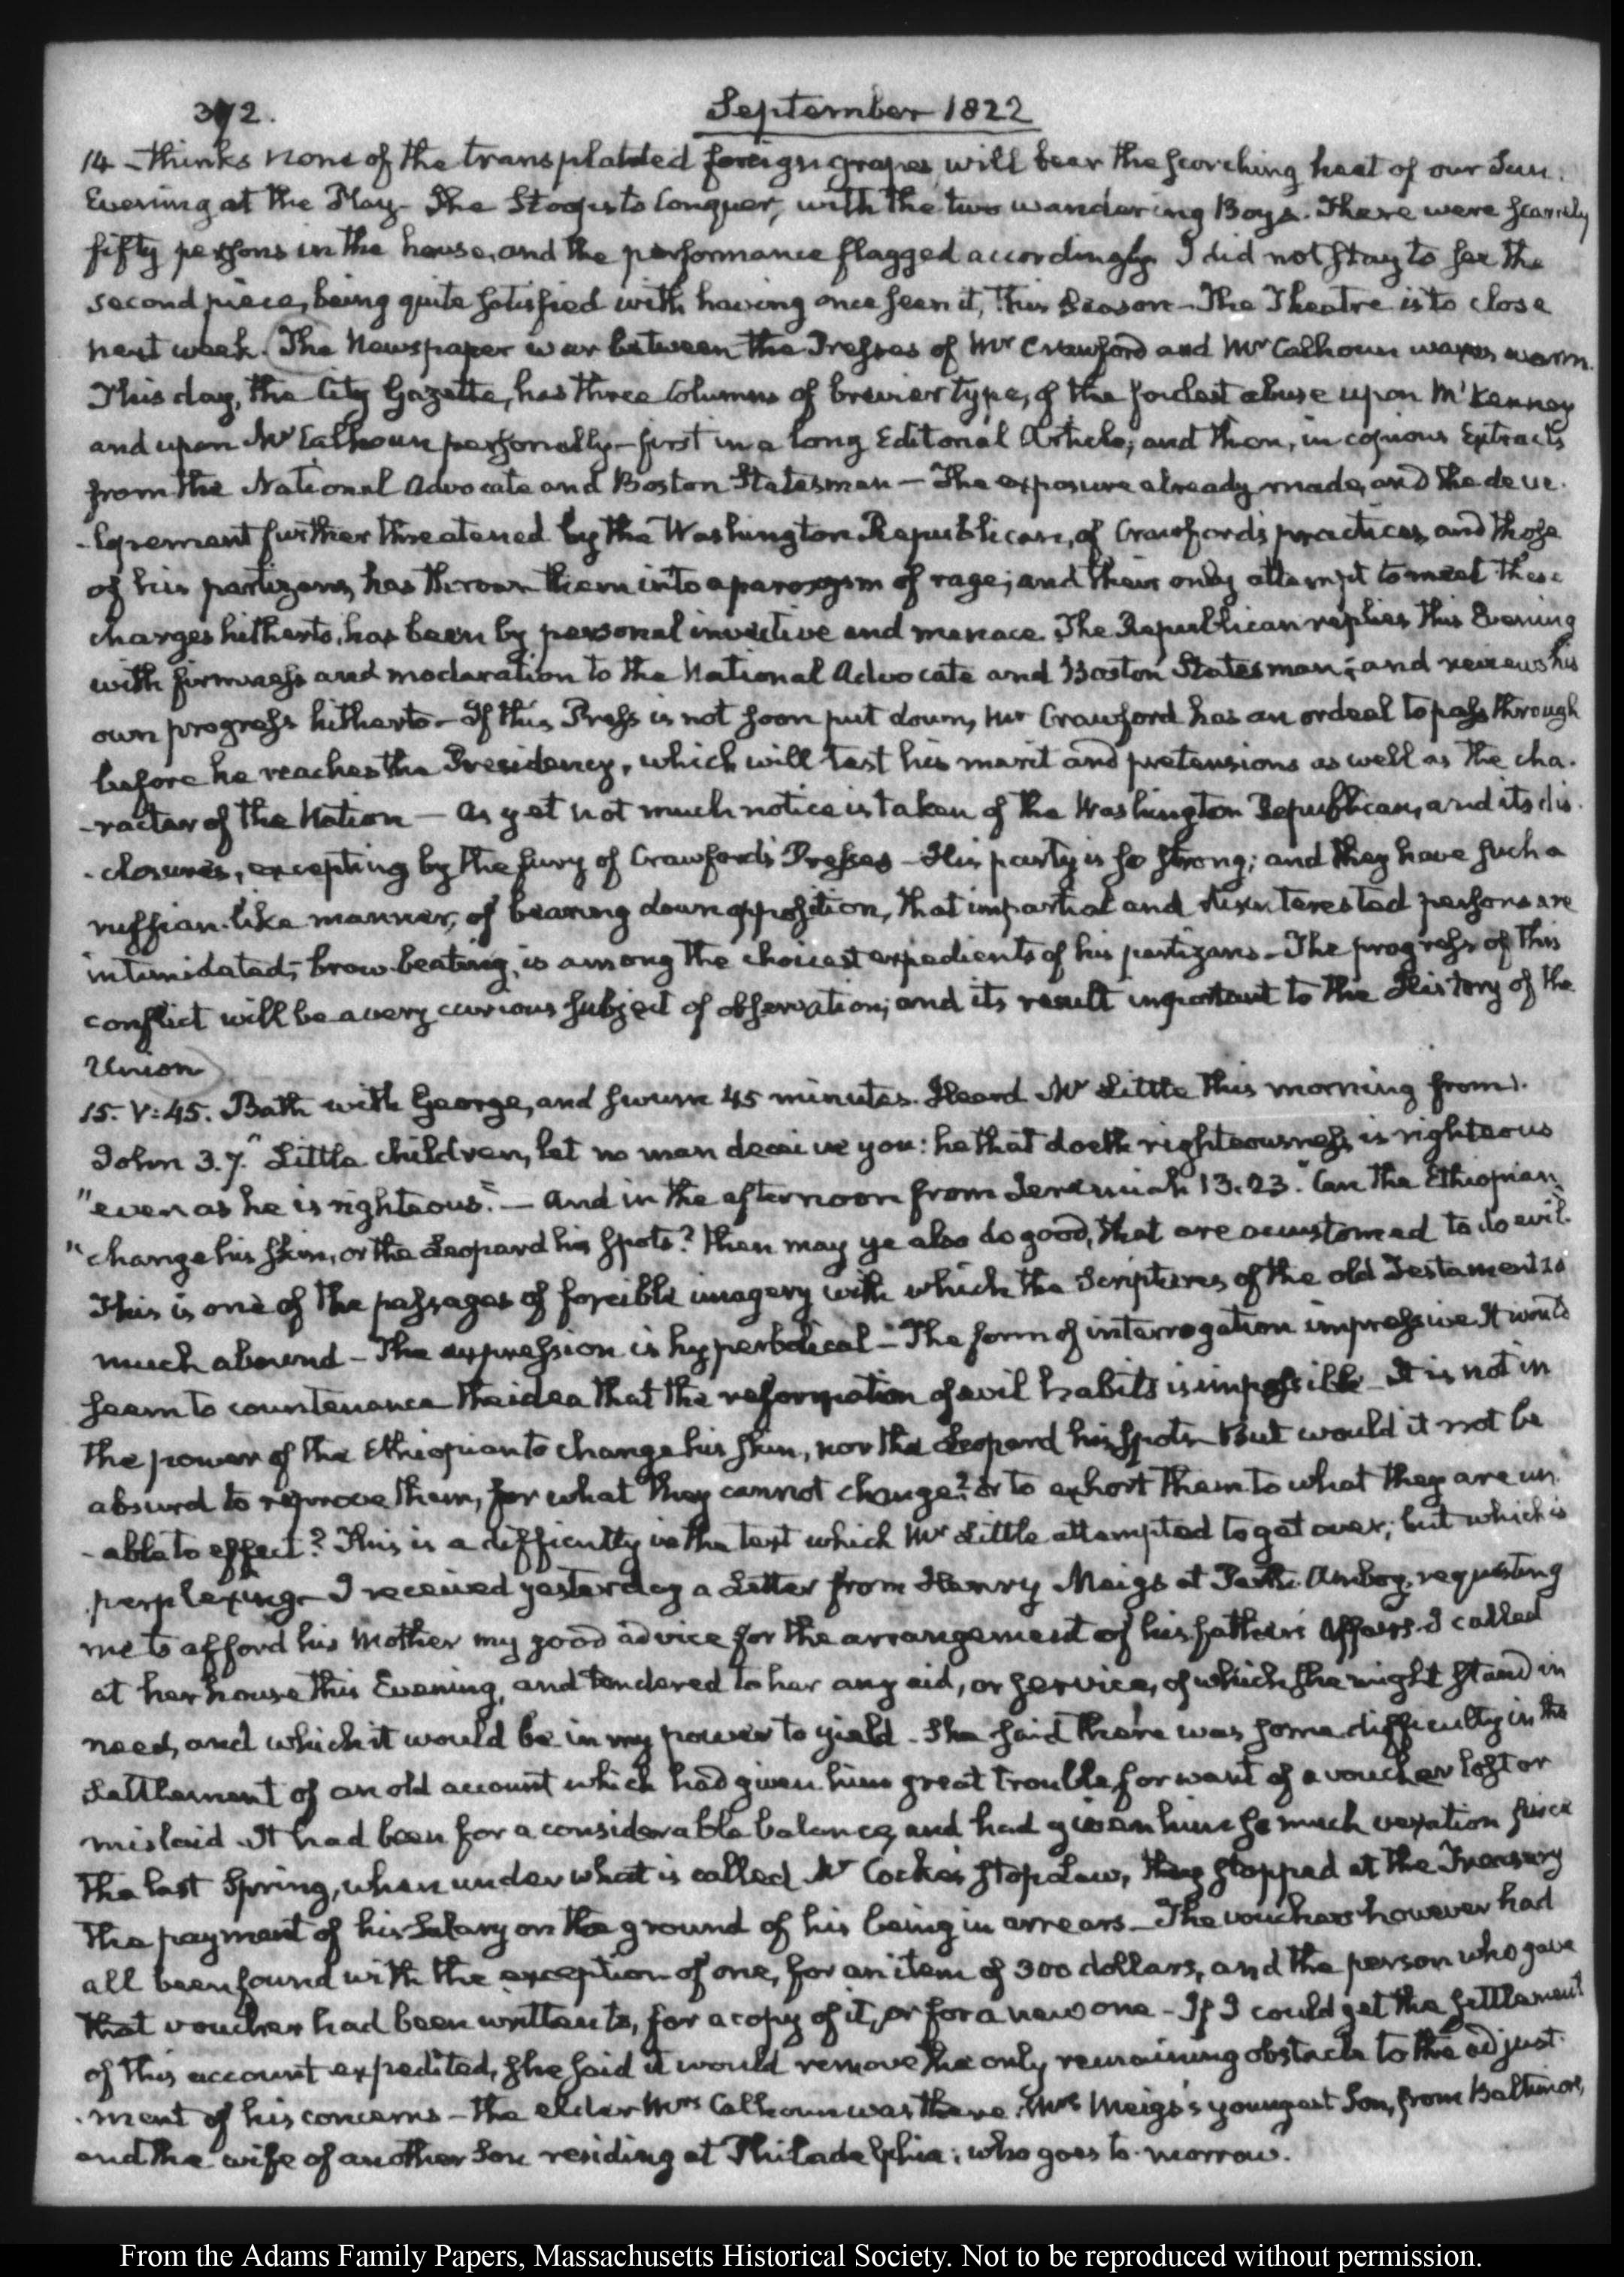 372.
September 1822
14 - thinks none of the transplanted foreign grapes will bear the scorching heat of our Sun.
Evening at the Play - She Stoops to Conquer, with the two wandering Boys. There were scarcely
fifty persons in the house, and the performance flagged accordingly. I did not stay to see the
second piece, being quite satisfied with having once seen it, this Season - The Theatre is to close
next week. The Newspaper war between the Presses of Mr Crawford and Mr Calhoun waxes warm.
This day, the City Gazette, has three Columns of brevier type, of the foulest abuse upon M'Kenney
and upon Mr Calhoun personally - first in a long Editorial Article; and then, in copious Extracts
from the National Advocate and Boston Statesman - The exposure already made, and the deve-
-lopement further threatened by the Washington Republican, of Crawford's practices, and those
of his partizans, has thrown them into a paroxysm of rage; and their only attempt to meet these
charges hitherto, has been by personal invective and menace. The Republican replies this Evening
with firmness and moderation to the National Advocate and Boston Statesman; and reviews his
own progress hitherto - If this Press is not soon put down, Mr Crawford has an ordeal to pass through
before he reaches the Presidency, which will test his merit and pretensions as well as the cha-
-racter of the Nation - As yet not much notice is taken of the Washington Republican, and its dis-
-closures, excepting by the fury of Crawford's Presses - His party is so strong; and they have such a
ruffian-like manner, of bearing down opposition, that impartial and disinterested persons are
intimidated; brow-beating, is among the choicest expedients of his partizans - The progress of this
conflict will be a very curious subject of observation; and its result important to the History of the
Union
15. V:45. Bath with George, and swum 45 minutes. Heard Mr Little this morning from 1.
John 3.7. "Little children, let no man deceive you: he that doeth righteousness, is righteous
"even as he is righteous." - And in the afternoon from Jeremiah 13.23. "Can the Ethiopian
"change his skin, or the Leopard his spots? then may ye also do good, that are accustomed to do evil.
This is one of the passages of forcible imagery with which the Scriptures of the old Testament so
much abound - The expression is hyperbolical - The form of interrogation impressive. It would
seem to countenance the idea that the reformation of evil habits is impossible - It is not in
the power of the Ethiopian to change his skin, nor the Leopard his spots - But would it not be
absurd to reprove them, for what they cannot change? or to exhort them to what they are un-
-able to effect? This is a difficulty in the text which Mr Little attempted to get over; but which is
perplexing - I received yesterday a Letter from Henry Meigs at Perth-Amboy, requesting
me to afford his Mother my good advice for the arrangement of his father's Affairs. I called
at her house this Evening, and tendered to her any aid, or service, of which she might stand in
need, and which it would be in my power to yield - She said there was some difficulty in the
settlement of an old account which had given him great trouble, for want of a voucher lost or
mislaid. It had been for a considerable balance, and had given him so much vexation since
the last Spring, when under what is called Mr Cocke's stop-Law, they stopped at the Treasury
the payment of his Salary on the ground of his being in arrears - The vouchers however had
all been found with the exception of one, for an item of 300 dollars, and the person who gave
that voucher had been written to, for a copy of it, or for a new one - If I could get the settlement
of this account expedited, she said it would remove the only remaining obstacle to the adjust-
-ment of his concerns - The elder Mrs Calhoun was there. Mrs Meigs's youngest Son, from Baltimore,
and the wife of another Son residing at Philadelphia; who goes to-morrow.
From the Adams Family Papers, Massachusetts Historical Society. Not to be reproduced without permission.